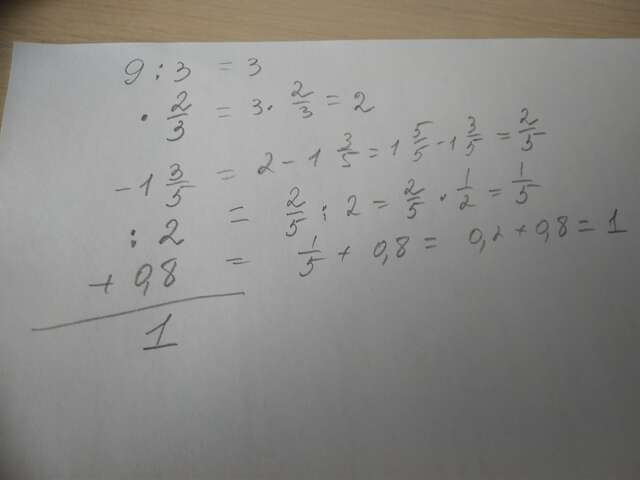 9 : 3 = 3
· 2/3 = 3 · 2/3 = 2
- 1 3/5 = 2 - 1 3/5 = 1 5/5 - 1 3/5 = 2/5
: 2 = 2/5 : 2 = 2/5 · 1/2 = 1/5
+ 0,8 = 1/5 + 0,8 = 0,2 + 0,8 = 1
1